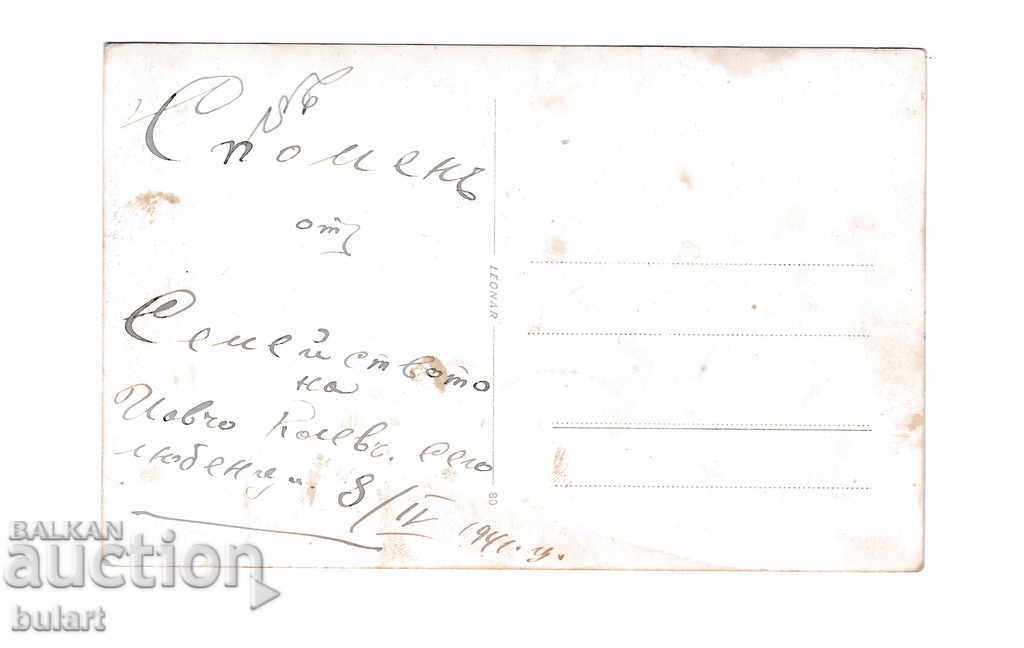 Споменъ
отъ
Семейството
на
Йовчо Колевъ. село
любенци. 8/IV 1941. г.
LEONAR
80
BALKAN
auction
bulart